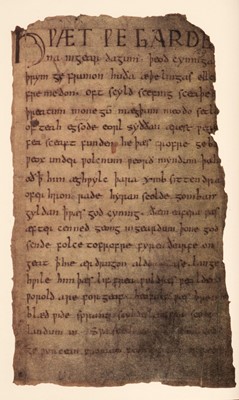 HǷÆT ǷE GARDE
na ingear dagum þeod cyninga
þrym ge frunon huða æþelingas elle
fremedon. oft scyld scefing sceaþe
þreatum monegū mægþum meodo setla
of teah egsode eorl syððan ærest ƿear
fea sceaft funden he þæs frofre geba
ƿeox under ƿolcnum ƿeorð myndum þah
oð ꝥ him æghƿylc þara ymb sittendra
ofer hron rade hyran scolde gomban
gyldan ꝥ ƿæs god cyning. ðæm eafera ƿæs
æfter cenned geong ingeardum þone god
sende folce tofrofre fyren ðearfe on
geat ꝥ hie ær drugon aldor ase. lange
hƿile him þæs lif frea ƿuldres ƿealdend
ƿorold are for geaf. ƿæs
blæd ƿide sprang scyldes eafera scede
landum in. Sƿa
ge ƿyrcean fromum